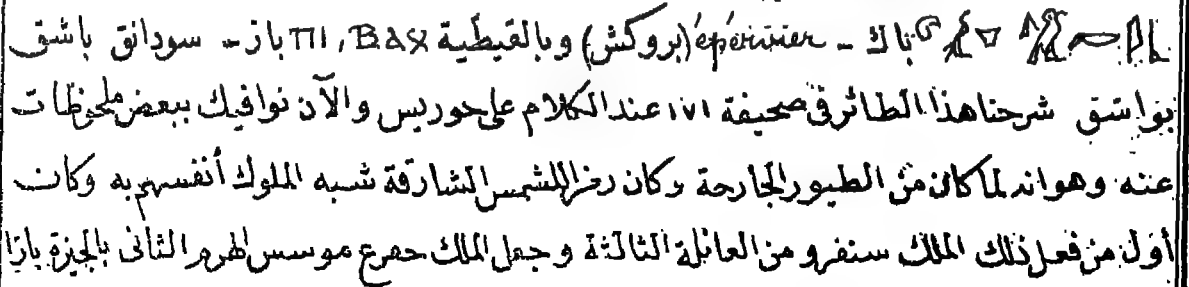 باك - épérivier (بروكش) وبالقيطية ΠΙ, BAX باز - سودانق باشق
بواشق شرحناهذا الطائرفى صحيفة ١٧١ عندالكلام على حوريس والآن نوافيك ببعض ملحوظات
عنه وهوانه لماكان من الطيورالجارحة وكان رمزاللشمس الشارقة شبه الملوك أنفسهم به وكان
أول من فعل ذلك الملك سنفرو من العائلة الثالثة وجعل الملك حفرع موسس الهرم الثانى بالجيزة بازا